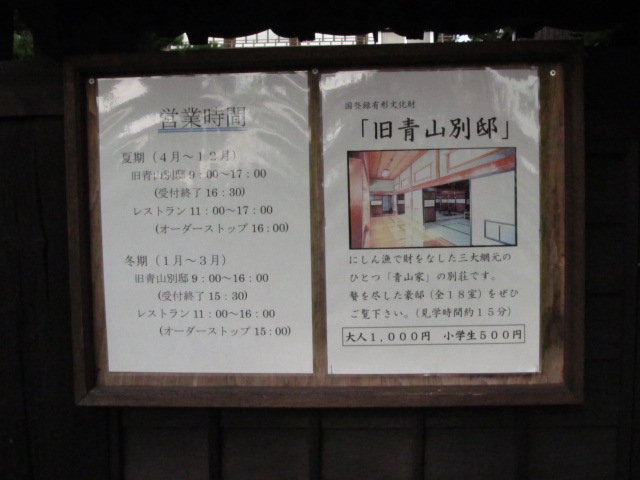 営業時間
夏期（４月～１２月）
旧青山別邸 9：00～17：00
(受付終了 16：30)
レストラン 11：00～17：00
(オーダーストップ 16：00)
冬期（１月～３月）
旧青山別邸 9：00～16：00
(受付終了 15：30)
レストラン 11：00～16：00
(オーダーストップ 15：00)
国登録有形文化財
「旧青山別邸」
にしん漁で財をなした三大網元の
ひとつ「青山家」の別荘です。
贅を尽した豪邸（全１８室）をぜひ
ご覧下さい。（見学時間約１５分）
大人１，０００円　小学生５００円